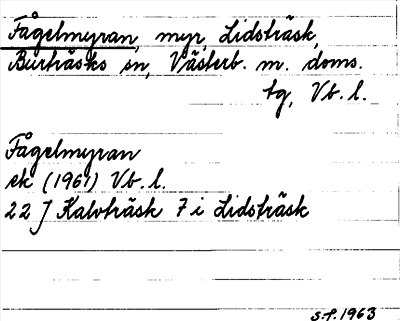 Fågelmyran, myr, Lidsträsk,
Burträsks sn, Västerb. m. doms.
tg, Vb. l.
Fågelmyran
ek (1961) Vb. l.
22 J Kalvträsk 7 i Lidsträsk
S.P. 1963